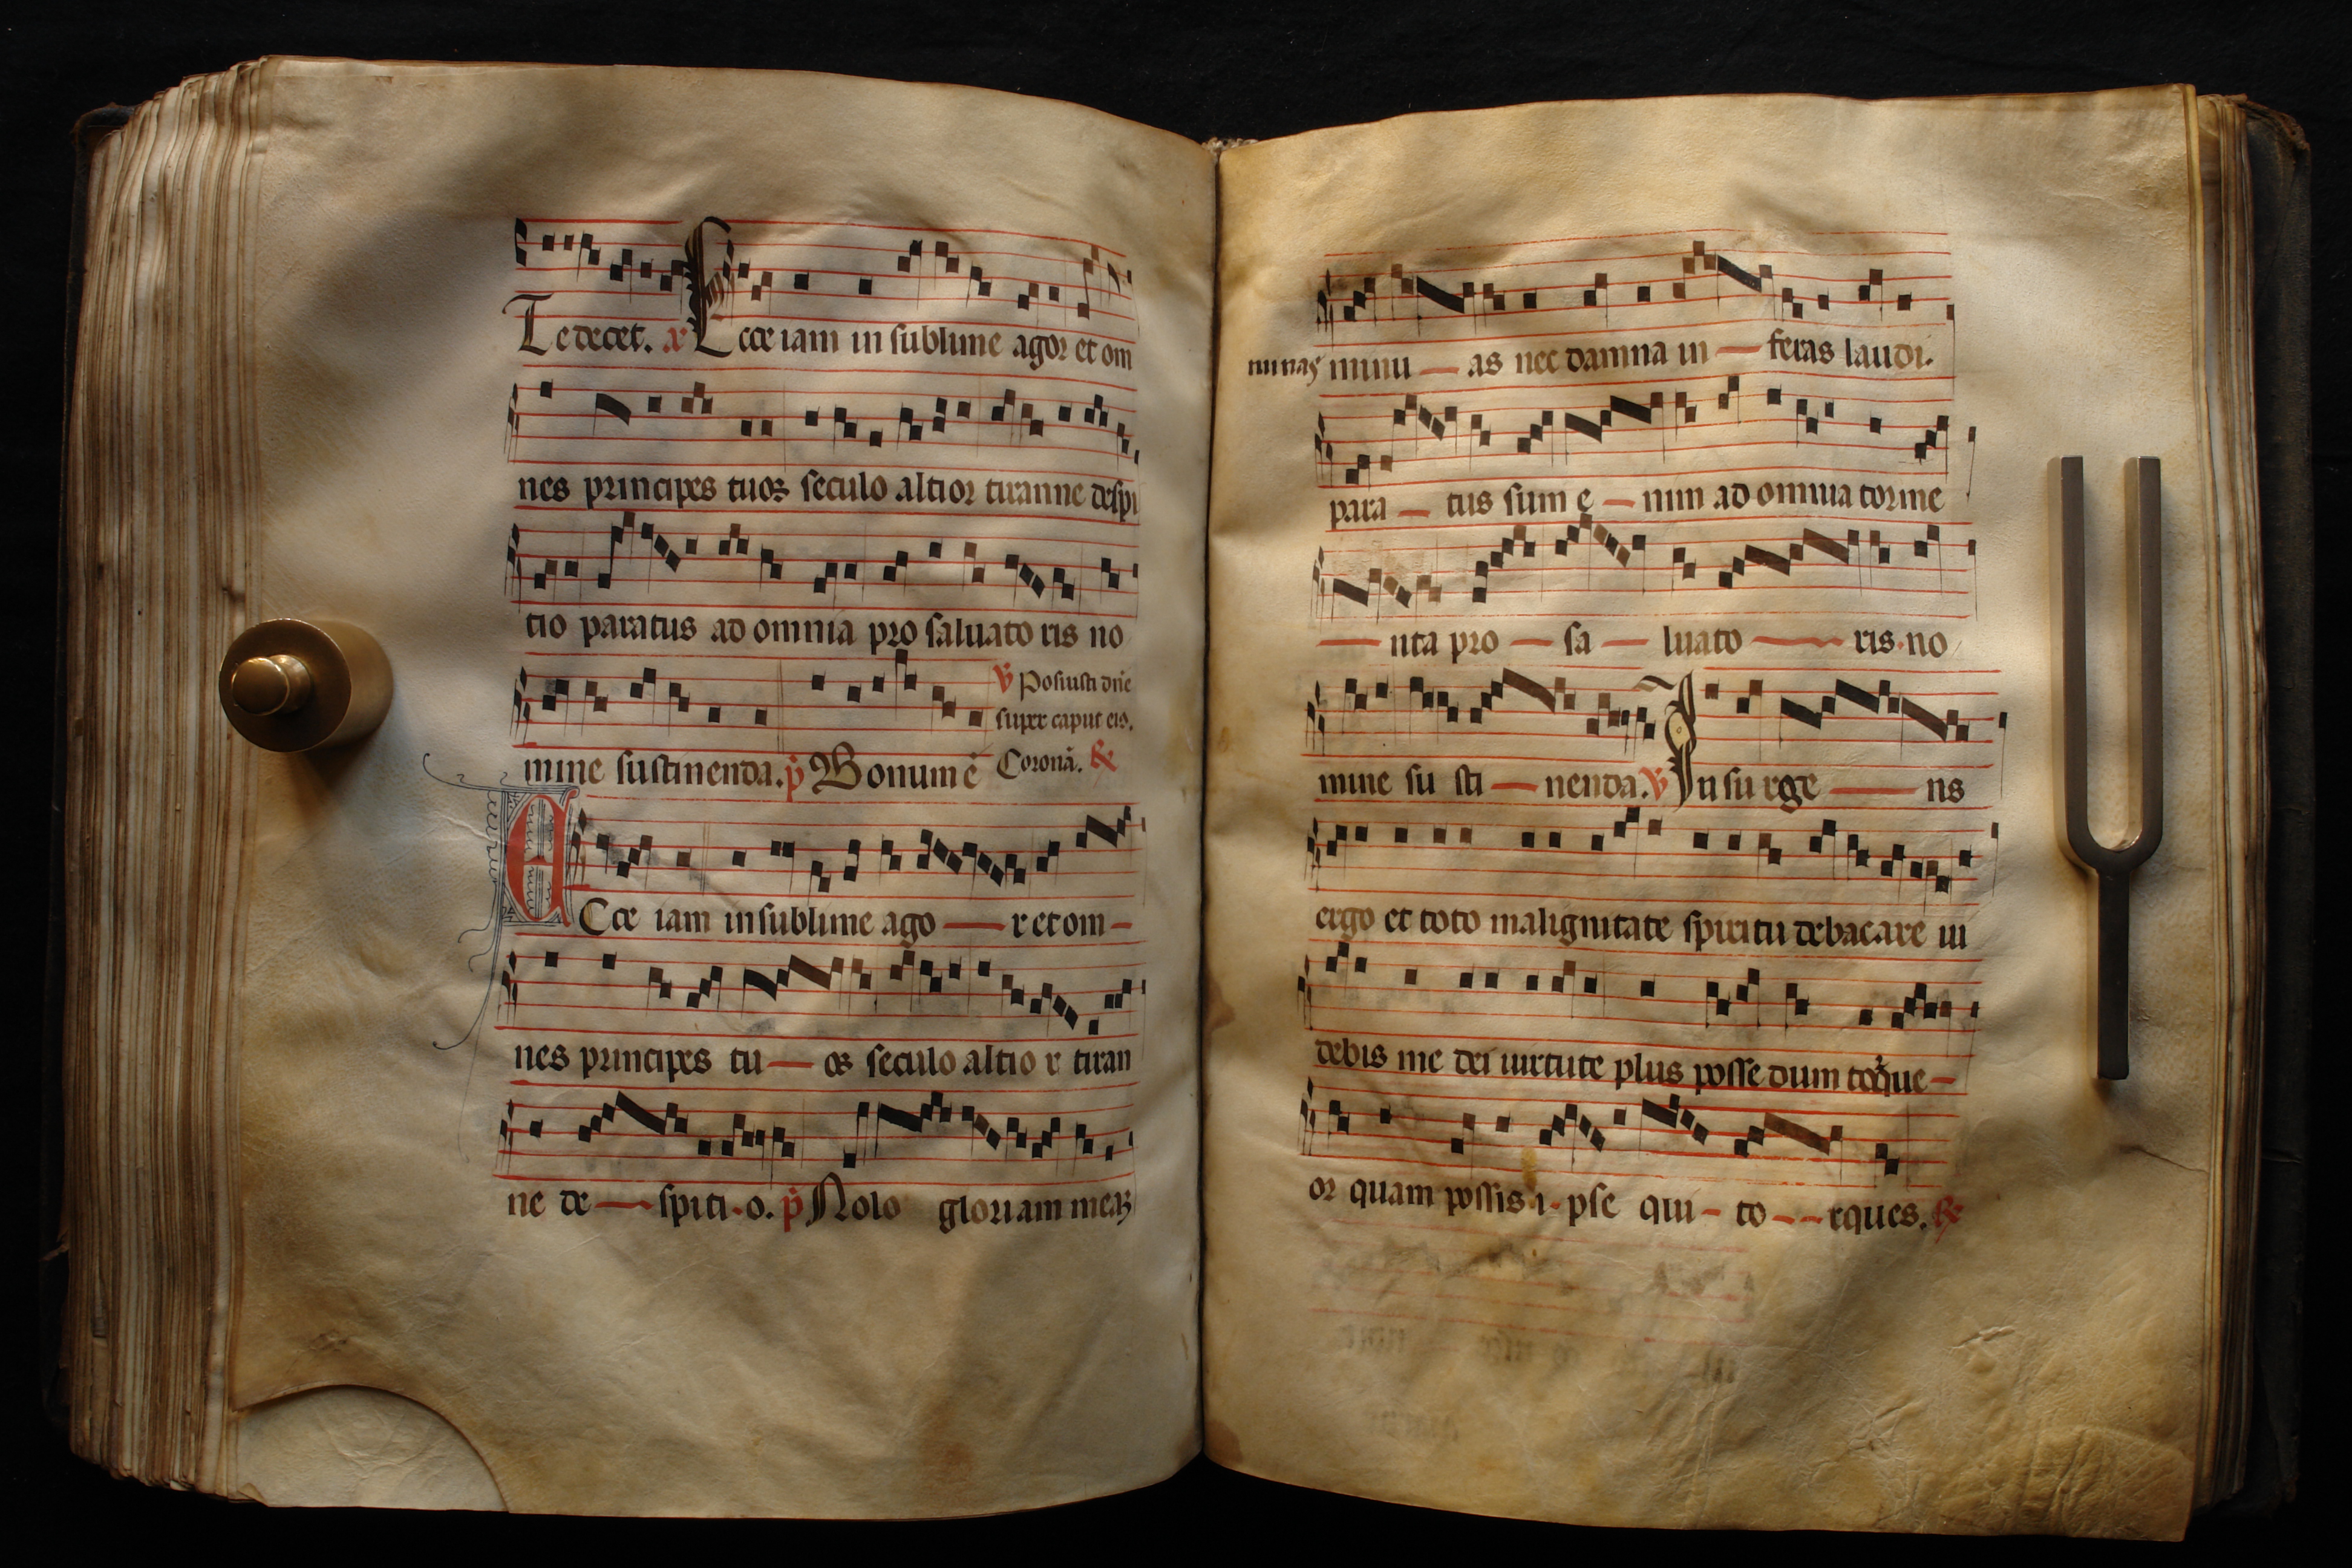 Te decet. a Ecce iam in sublime agor et om
nes principes tuoꝝ seculo altior tiranne despi
tio paratus ad omnia pro saluato ris no
℣ Posuisti dñe
super caput eiꝰ.
mine sustinenda. p̄ Bonum ē Coronā. ℟
Ecce iam in sublime ago — r et om –
nes principes tu — os seculo altio r tiran
ne de — spiti - o. p̄ Nolo gloriam meaꝝ
minas minu — as nec damna in — feras laudi.
para — tus sum e — nim ad omnia torme
— nta pro — sa — luato — ris · no
mine su sti — nenda. ℣ Insurge — ns
ergo et toto malignitate spiritu debacare ui
debis me dei uirtute plus posse dum torque –
or quam possis i - pse qui – to – – rques. ℟